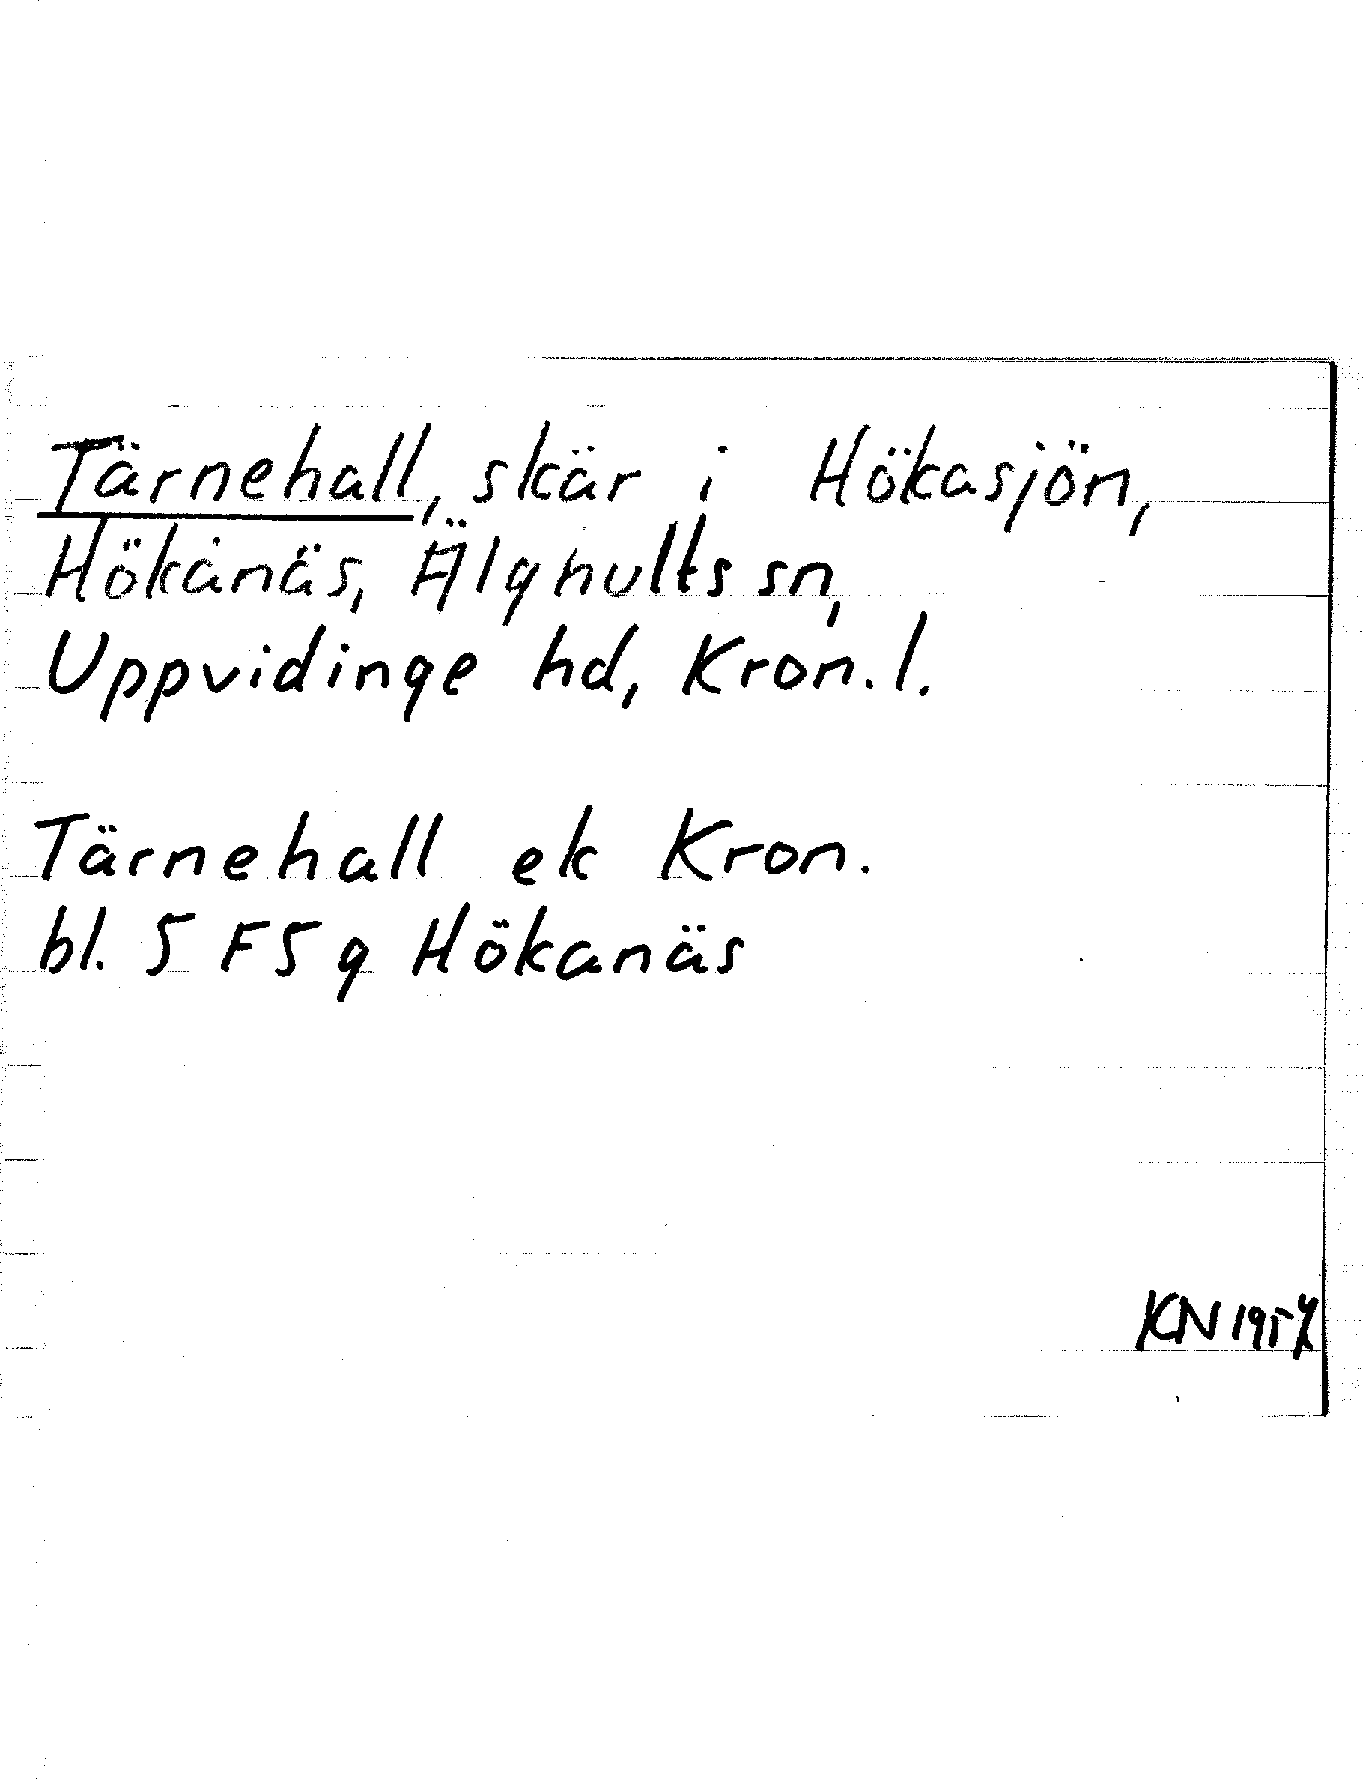 Tärnehall, skär i Hökasjön,
Hökanäs, Älghults sn,
Uppvidinge hd, Kron. l.
Tärnehall ek Kron.
bl. 5 F 5 g Hökanäs
KN 1957